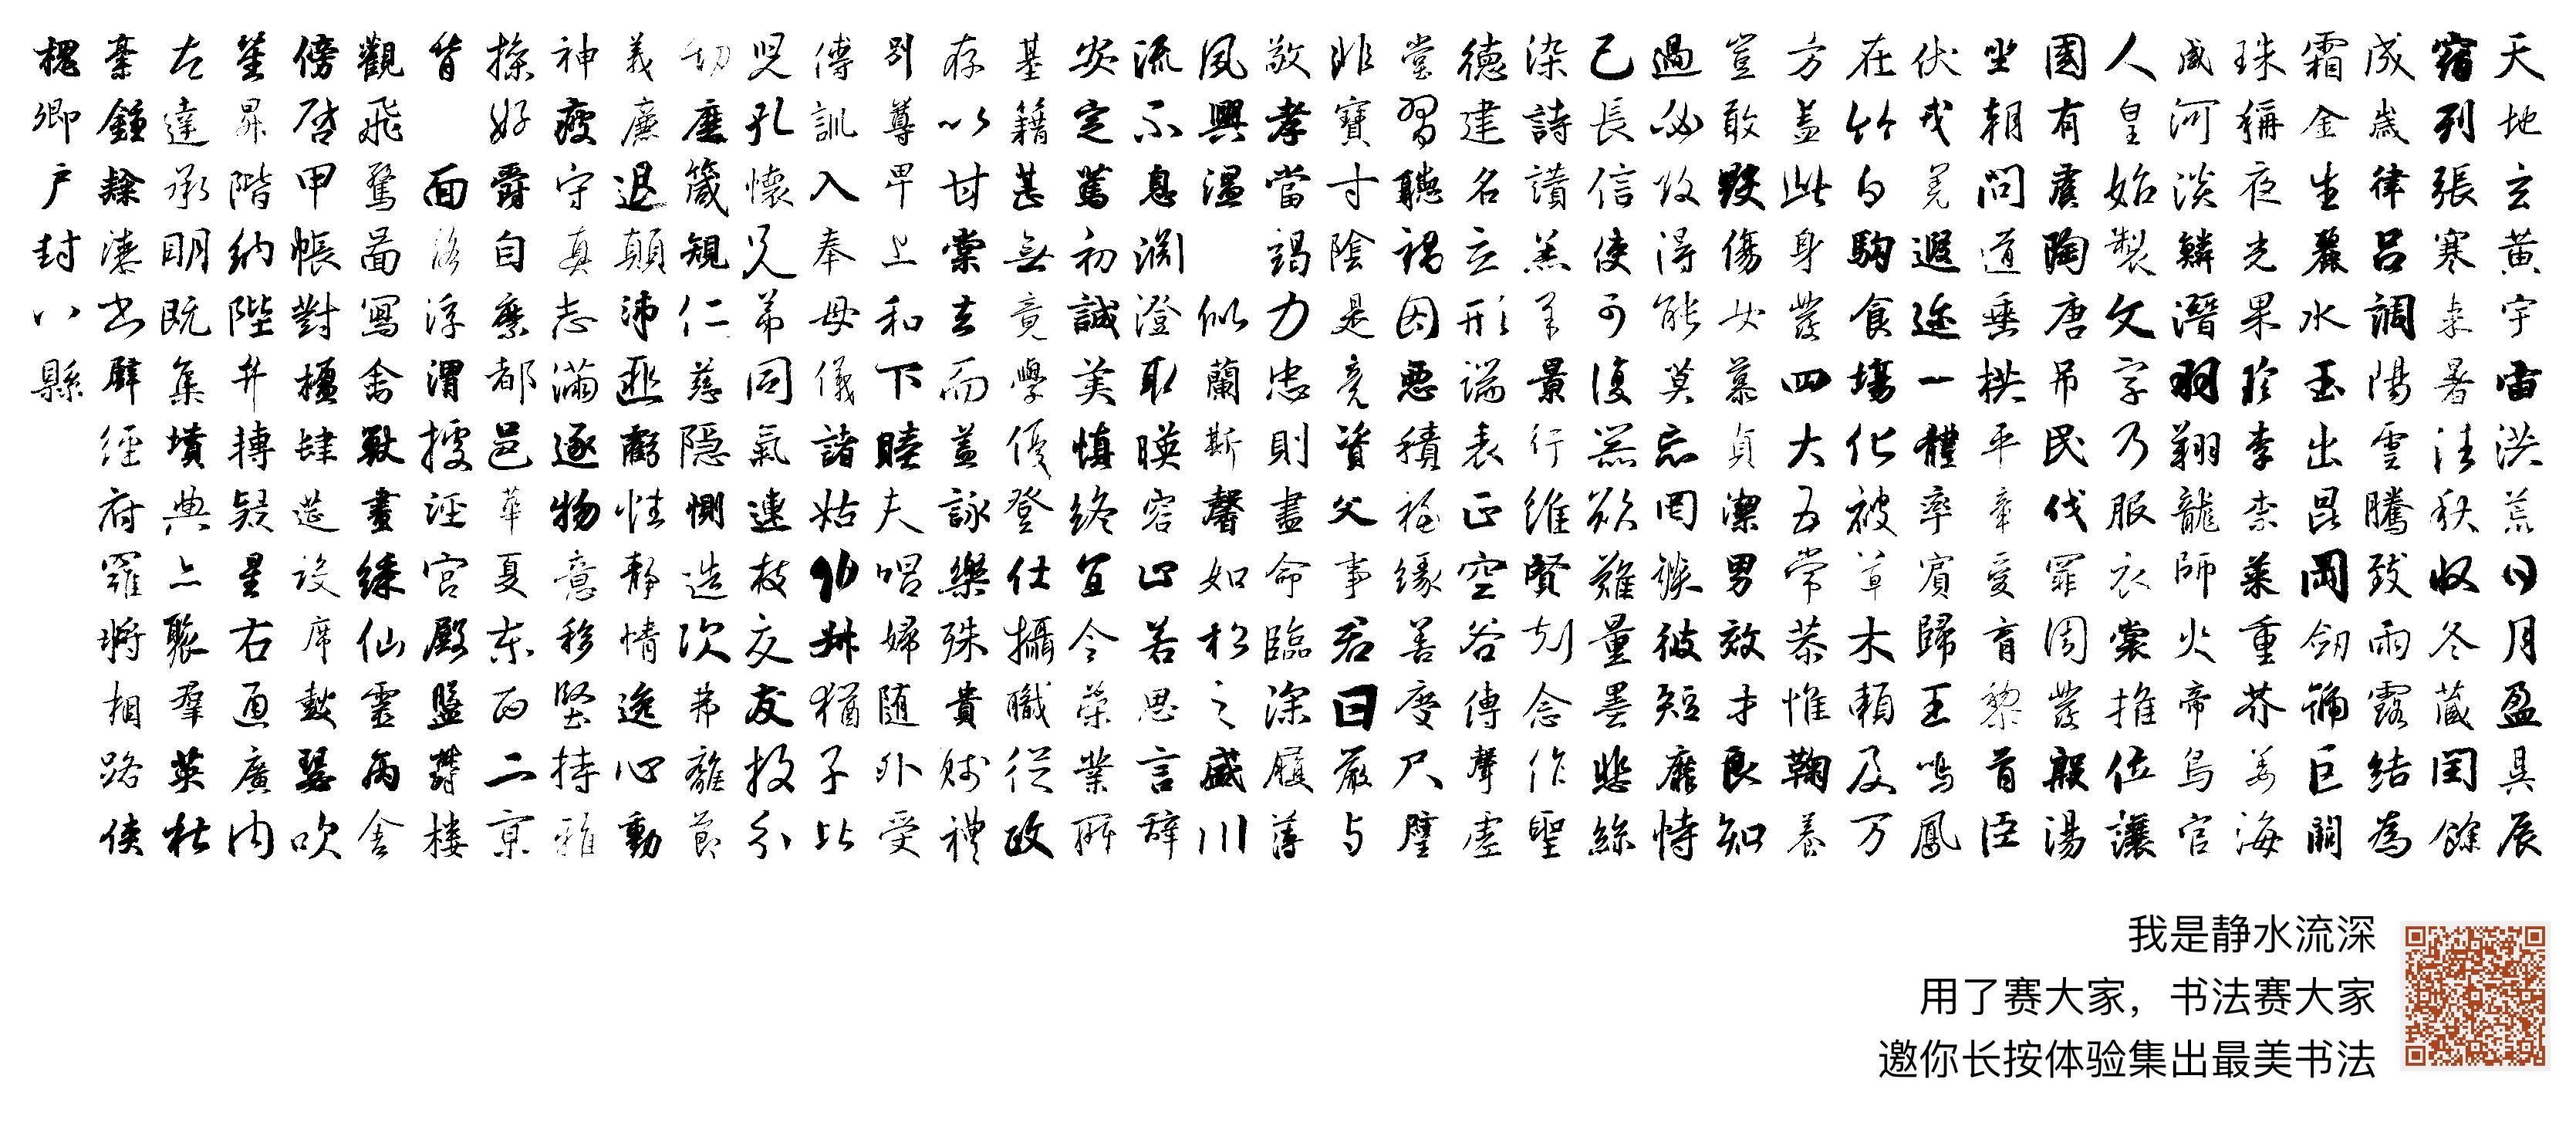 天地玄黄宇宙洪荒日月盈昃辰
宿列張寒来暑往秋收冬藏閏餘
成歲律吕調陽雲騰致雨露結為
霜金生麗水玉出昆岡劍號巨闕
珠稱夜光果珍李柰菜重芥薑海
咸河淡鱗潛羽翔龍師火帝鳥官
人皇始製文字乃服衣裳推位讓
國有虞陶唐弔民伐罪周發殷湯
坐朝問道垂拱平章愛育黎首臣
伏戎羌遐邇一體率賓歸王鳴鳳
在竹白駒食場化被草木賴及万
方蓋此身髮四大五常恭惟鞠養
豈敢毀傷女慕貞潔男效才良知
過必改得能莫忘罔談彼短靡恃
己長信使可復器欲難量墨悲絲
染詩讚羔羊景行維賢剋念作聖
德建名立形端表正空谷傳聲虛
堂習聽禍因惡積福緣善慶尺璧
非寶寸陰是競資父事君曰嚴与
敬孝當竭力忠則盡命臨深履薄
夙興温似蘭斯馨如松之盛川
流不息淵澄取暎容止若思言辭
安定篤初誠美慎終宜令榮業所
基籍甚無竟學優登仕攝職從政
存以甘棠去而益詠樂殊貴賤禮
別尊卑上和下睦夫唱婦随外受
傅訓入奉母儀諸姑伯叔猶子比
兒孔懷兄弟同氣連枝交友投分
切磨箴規仁慈隱惻造次弗離節
義廉退顛沛匪虧性靜情逸心動
神疲守真志滿逐物意移堅持雅
操好爵自縻都邑華夏東西二京
背面洛浮渭據涇宮殿盤鬱樓
觀飛驚圖寫禽獸畫綵仙靈丙舍
傍啓甲帳對楹肆筵設席鼓瑟吹
笙昇階納陛弁轉疑星右通廣内
左達承明既集墳典亦聚羣英杜
稾鍾隸漆書壁經府羅將相路俠
槐卿户封八縣
我是静水流深
用了赛大家，书法赛大家
邀你长按体验集出最美书法